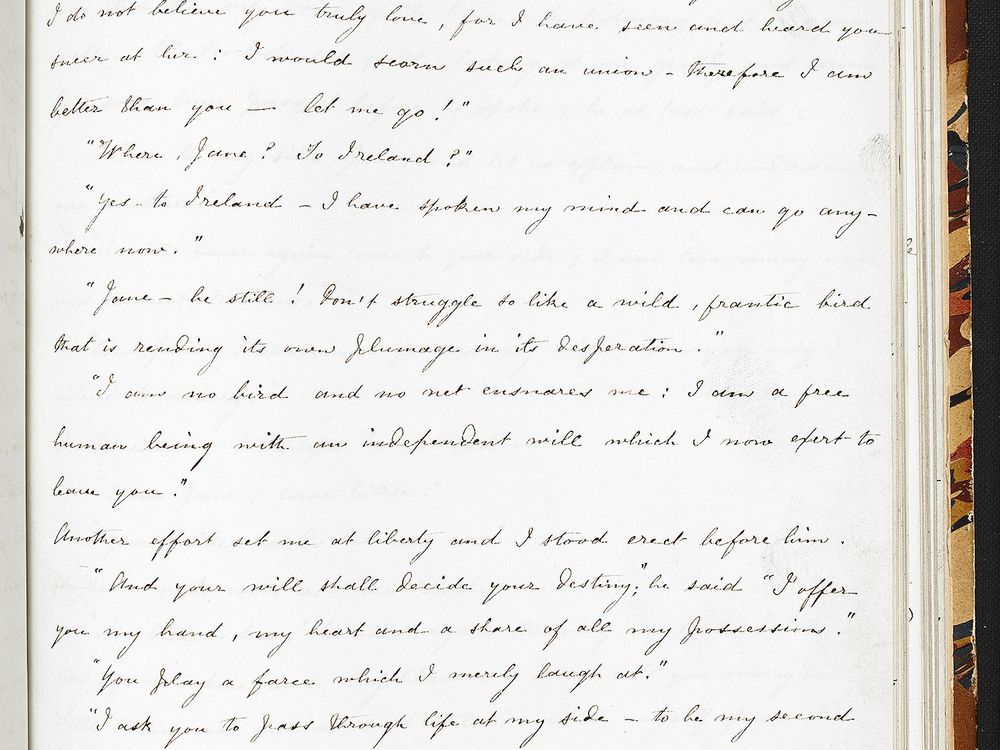 I do not believe you truly love, for I have seen and heard you
sneer at her: I would scorn such an union - therefore I am
better than you — let me go!"
"Where, Jane? To Ireland?"
"Yes - to Ireland - I have spoken my mind and can go any-
where now."
"Jane - be still! don't struggle so like a wild, frantic bird
that is rending its own plumage in its desperation."
"I am no bird and no net ensnares me: I am a free
human being with an independent will which I now exert to
leave you."
Another effort set me at liberty and I stood erect before him.
"And your will shall decide your destiny;" he said "I offer
you my hand, my heart and a share of all my possessions."
"You play a farce which I merely laugh at."
"I ask you to pass through life at my side - to be my second